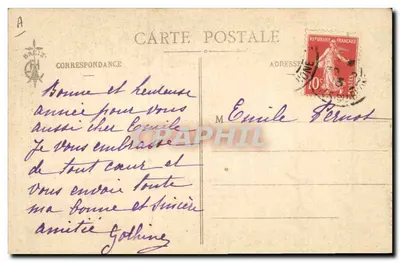 A
CARTE POSTALE
CORRESPONDANCE
ADRESSE
REPUBLIQUE FRANÇAISE
10
Bonne et heureuse
année pour vous
aussi cher Emile
Je vous embrasse
de tout cœur et
vous envoie toute
ma bonne et sincère
amitié
M Emile Pernot